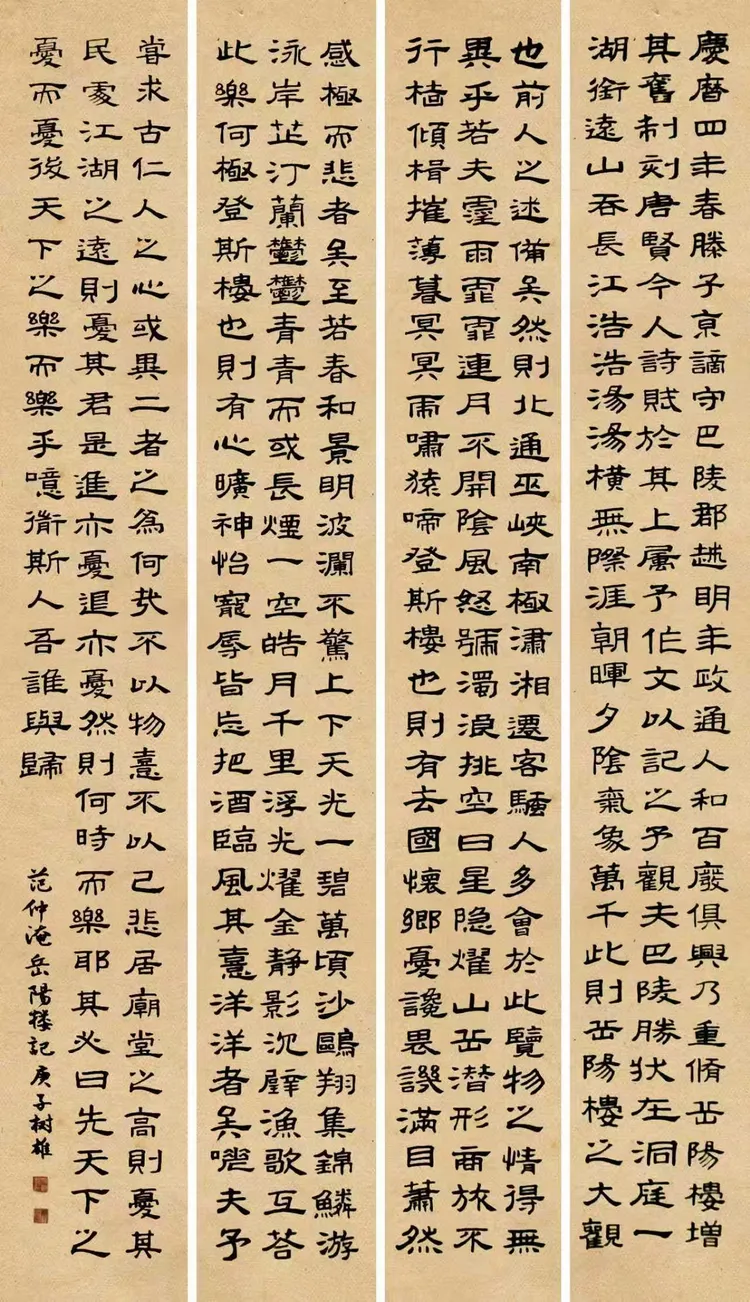 慶曆四年春滕子京謫守巴陵郡越明年政通人和百廢俱興乃重脩岳陽樓增
其舊制刻唐賢今人詩賦於其上属予作文以記之予觀夫巴陵勝狀在洞庭一
湖銜遠山吞長江浩浩湯湯橫無際涯朝暉夕陰氣象萬千此則岳陽樓之大觀
也前人之述備矣然則北通巫峽南極瀟湘遷客騷人多會於此覽物之情得無
異乎若夫霪雨霏霏連月不開陰風怒號濁浪排空日星隐燿山岳潛形商旅不
行檣傾楫摧薄暮冥冥虎嘯猿啼登斯樓也則有去國懷鄉憂讒畏譏滿目蕭然
感極而悲者矣至若春和景明波瀾不驚上下天光一碧萬頃沙鷗翔集錦鱗游
泳岸芷汀蘭鬱鬱青青而或長煙一空皓月千里浮光燿金静影沉璧漁歌互答
此樂何極登斯樓也則有心曠神怡寵辱皆忘把酒臨風其憙洋洋者矣嗟夫予
嘗求古仁人之心或異二者之為何哉不以物憙不以己悲居廟堂之高則憂其
民處江湖之遠則憂其君是進亦憂退亦憂然則何時而樂耶其必曰先天下之
憂而憂後天下之樂而樂乎噫微斯人吾誰與歸
范仲淹岳陽楼記庚子树雄